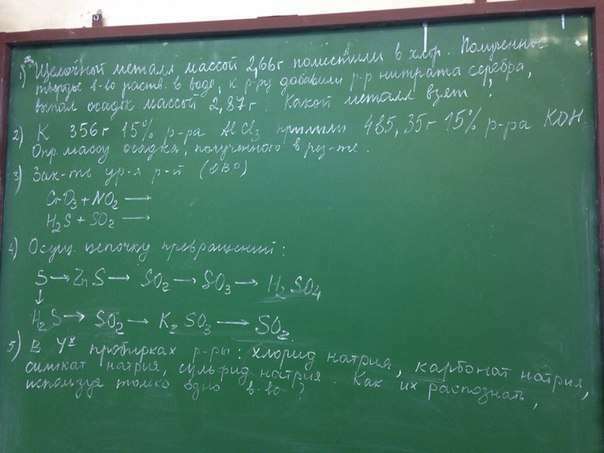 1) Щелочный металл массой 2,66г поместили в хлор. Полученное
твердое в-во раств. в воде, к р-ру добавили р-р нитрата серебра,
выпал осадок массой 2,87г. Какой металл взят?
2) К 356г 15% р-ра AlCl3 прилили 485,35г 15% р-ра KOH.
Опр. массу осадка, полученного в рез-те.
3) Зак-те ур-я р-й (ОВР)
CrO3 + NO2 →
H2S + SO2 →
4) Осущ. цепочку превращений:
S → ZnS → SO2 → SO3 → H2SO4
↓
H2S → SO2 → K2SO3 → SO2
5) В 4х пробирках р-ры: хлорид натрия, карбонат натрия,
силикат натрия, сульфид натрия. Как их распознать,
используя только одно в-во?